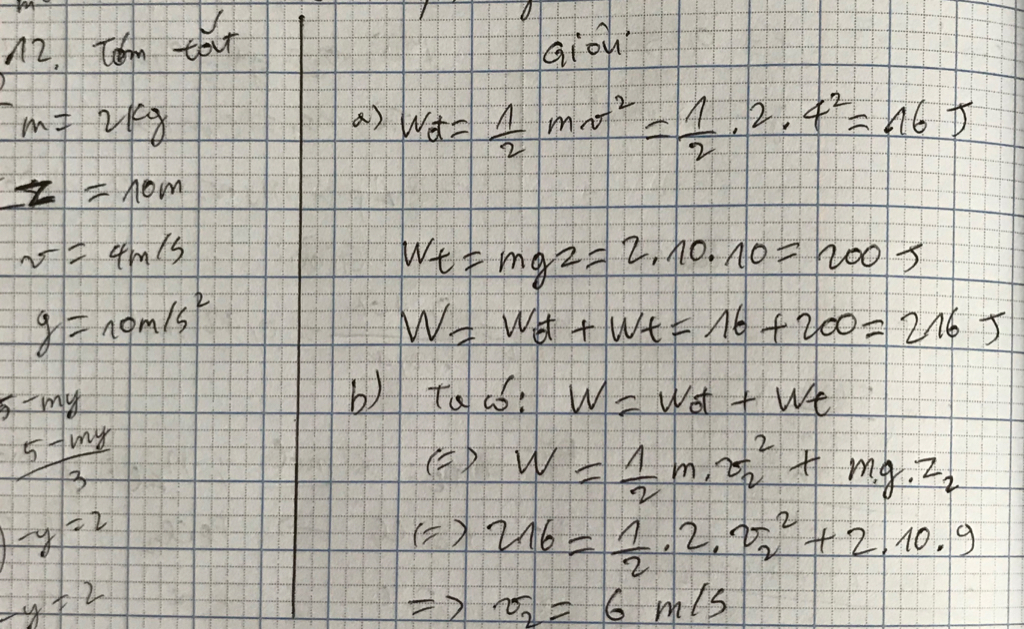 12. Tóm tắt
m = 2kg
z = 10m
v = 4m/s
g = 10m/s²
5-my
5-my
3
-y=2
-y=2
Giải
a) Wđ = 1/2 mv² = 1/2 . 2 . 4² = 16 J
Wt = mgz = 2.10.10 = 200 J
W = Wđ + Wt = 16 + 200 = 216 J
b) Ta có: W = Wđ + Wt
(=) W = 1/2 m.v₂² + m.g.z₂
(=) 216 = 1/2 .2. v₂² + 2.10.9
=> v₂ = 6 m/s